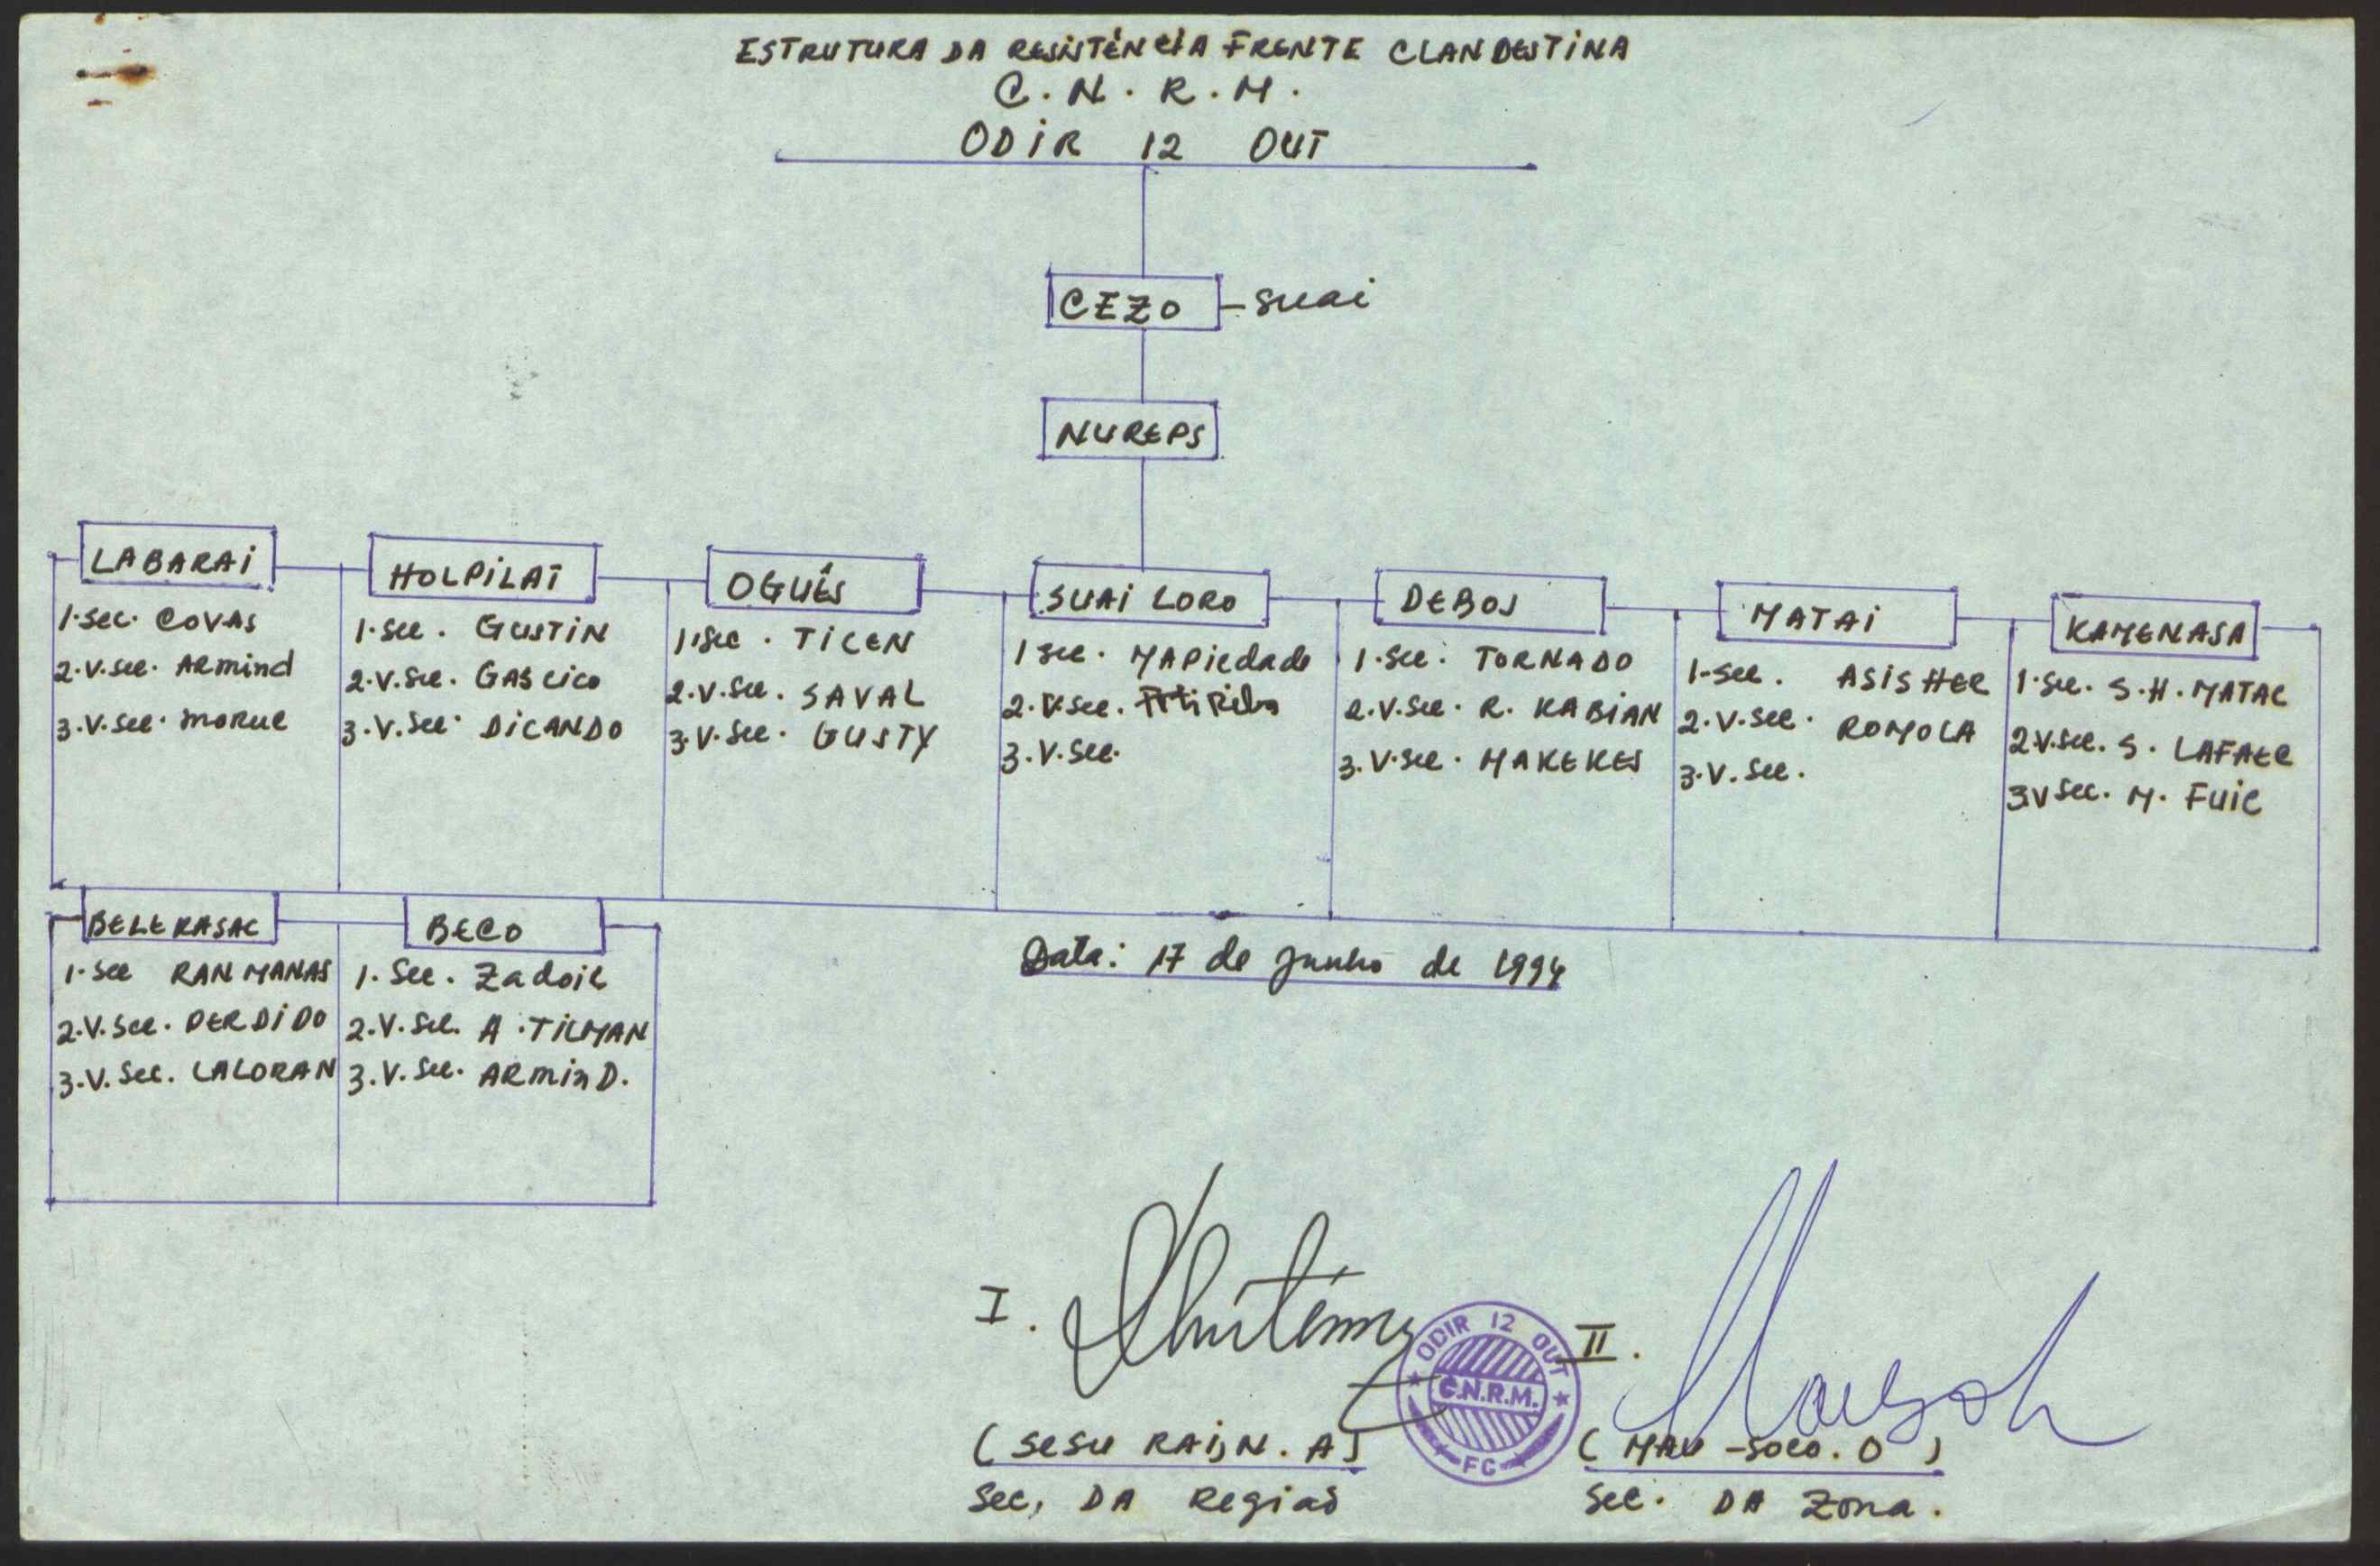 ESTRUTURA DA RESISTÊNCIA FRENTE CLANDESTINA
C. N. R. M.
ODIR 12 OUT
CEZO - Suai
NUREPS
LABARAI
1. Sec. COVAS
2. V. Sec. ARmind
3. V. Sec. moruc
HOLPILAT
1. Sec. GUSTIN
2. V. Sec. GAScico
3. V. Sec. DICANDO
OGUÊS
1. Sec. TILEN
2. V. Sec. SAVAL
3. V. Sec. GUSTY
SUAI LORO
1 Sec. MAPiedade
2. V. Sec.
3. V. Sec.
DEBOS
1. Sec. TORNADO
2. V. Sec. R. KABIAN
3. V. Sec. MAKEKES
MATAI
1. Sec. ASISHEL
2. V. Sec. ROMOLA
3. V. Sec.
KAMENASA
1. Sec. S. H. MATAL
2. V. Sec. S. LAFAEL
3. V Sec. M. FUIL
BELEKASAC
1. Sec RAN MANAS
2. V. Sec. PERDIDO
3. V. Sec. LALORAN
BECO
1. Sec. Zadoik
2. V. Sec. A. TILMAN
3. V. Sec. ARminD.
Data: 17 de Junho de 1994
I.
II.
ODIR 12 OUT
C.N.R.M.
FC
(SESU RAI, N. A)
(MAU - SOCO. O)
Sec, DA Região
Sec. DA Zona.